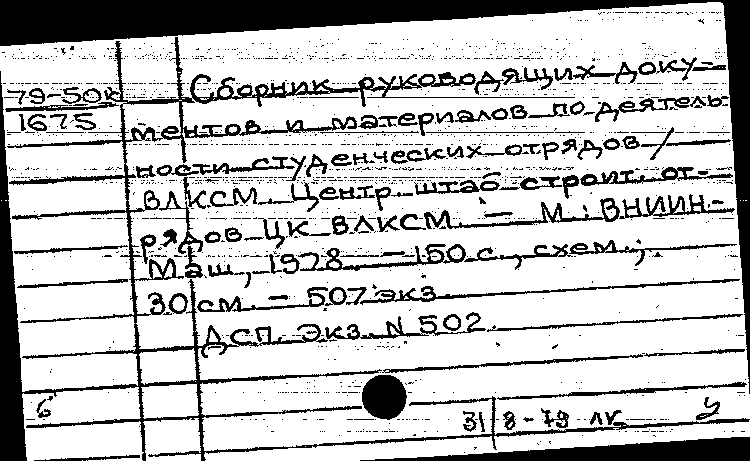 79-50к Сборник руководящих доку-
1675 ментов и материалов по деятель-
ности студенческих отрядов /
ВЛКСМ. Центр. штаб строит. от-
рядов ЦК ВЛКСМ. — М.: ВНИИН-
Маш, 1978. — 150 с., схем.;
30 см. — 507 экз.
ДСП. Экз. N 502.
6 31/8-79